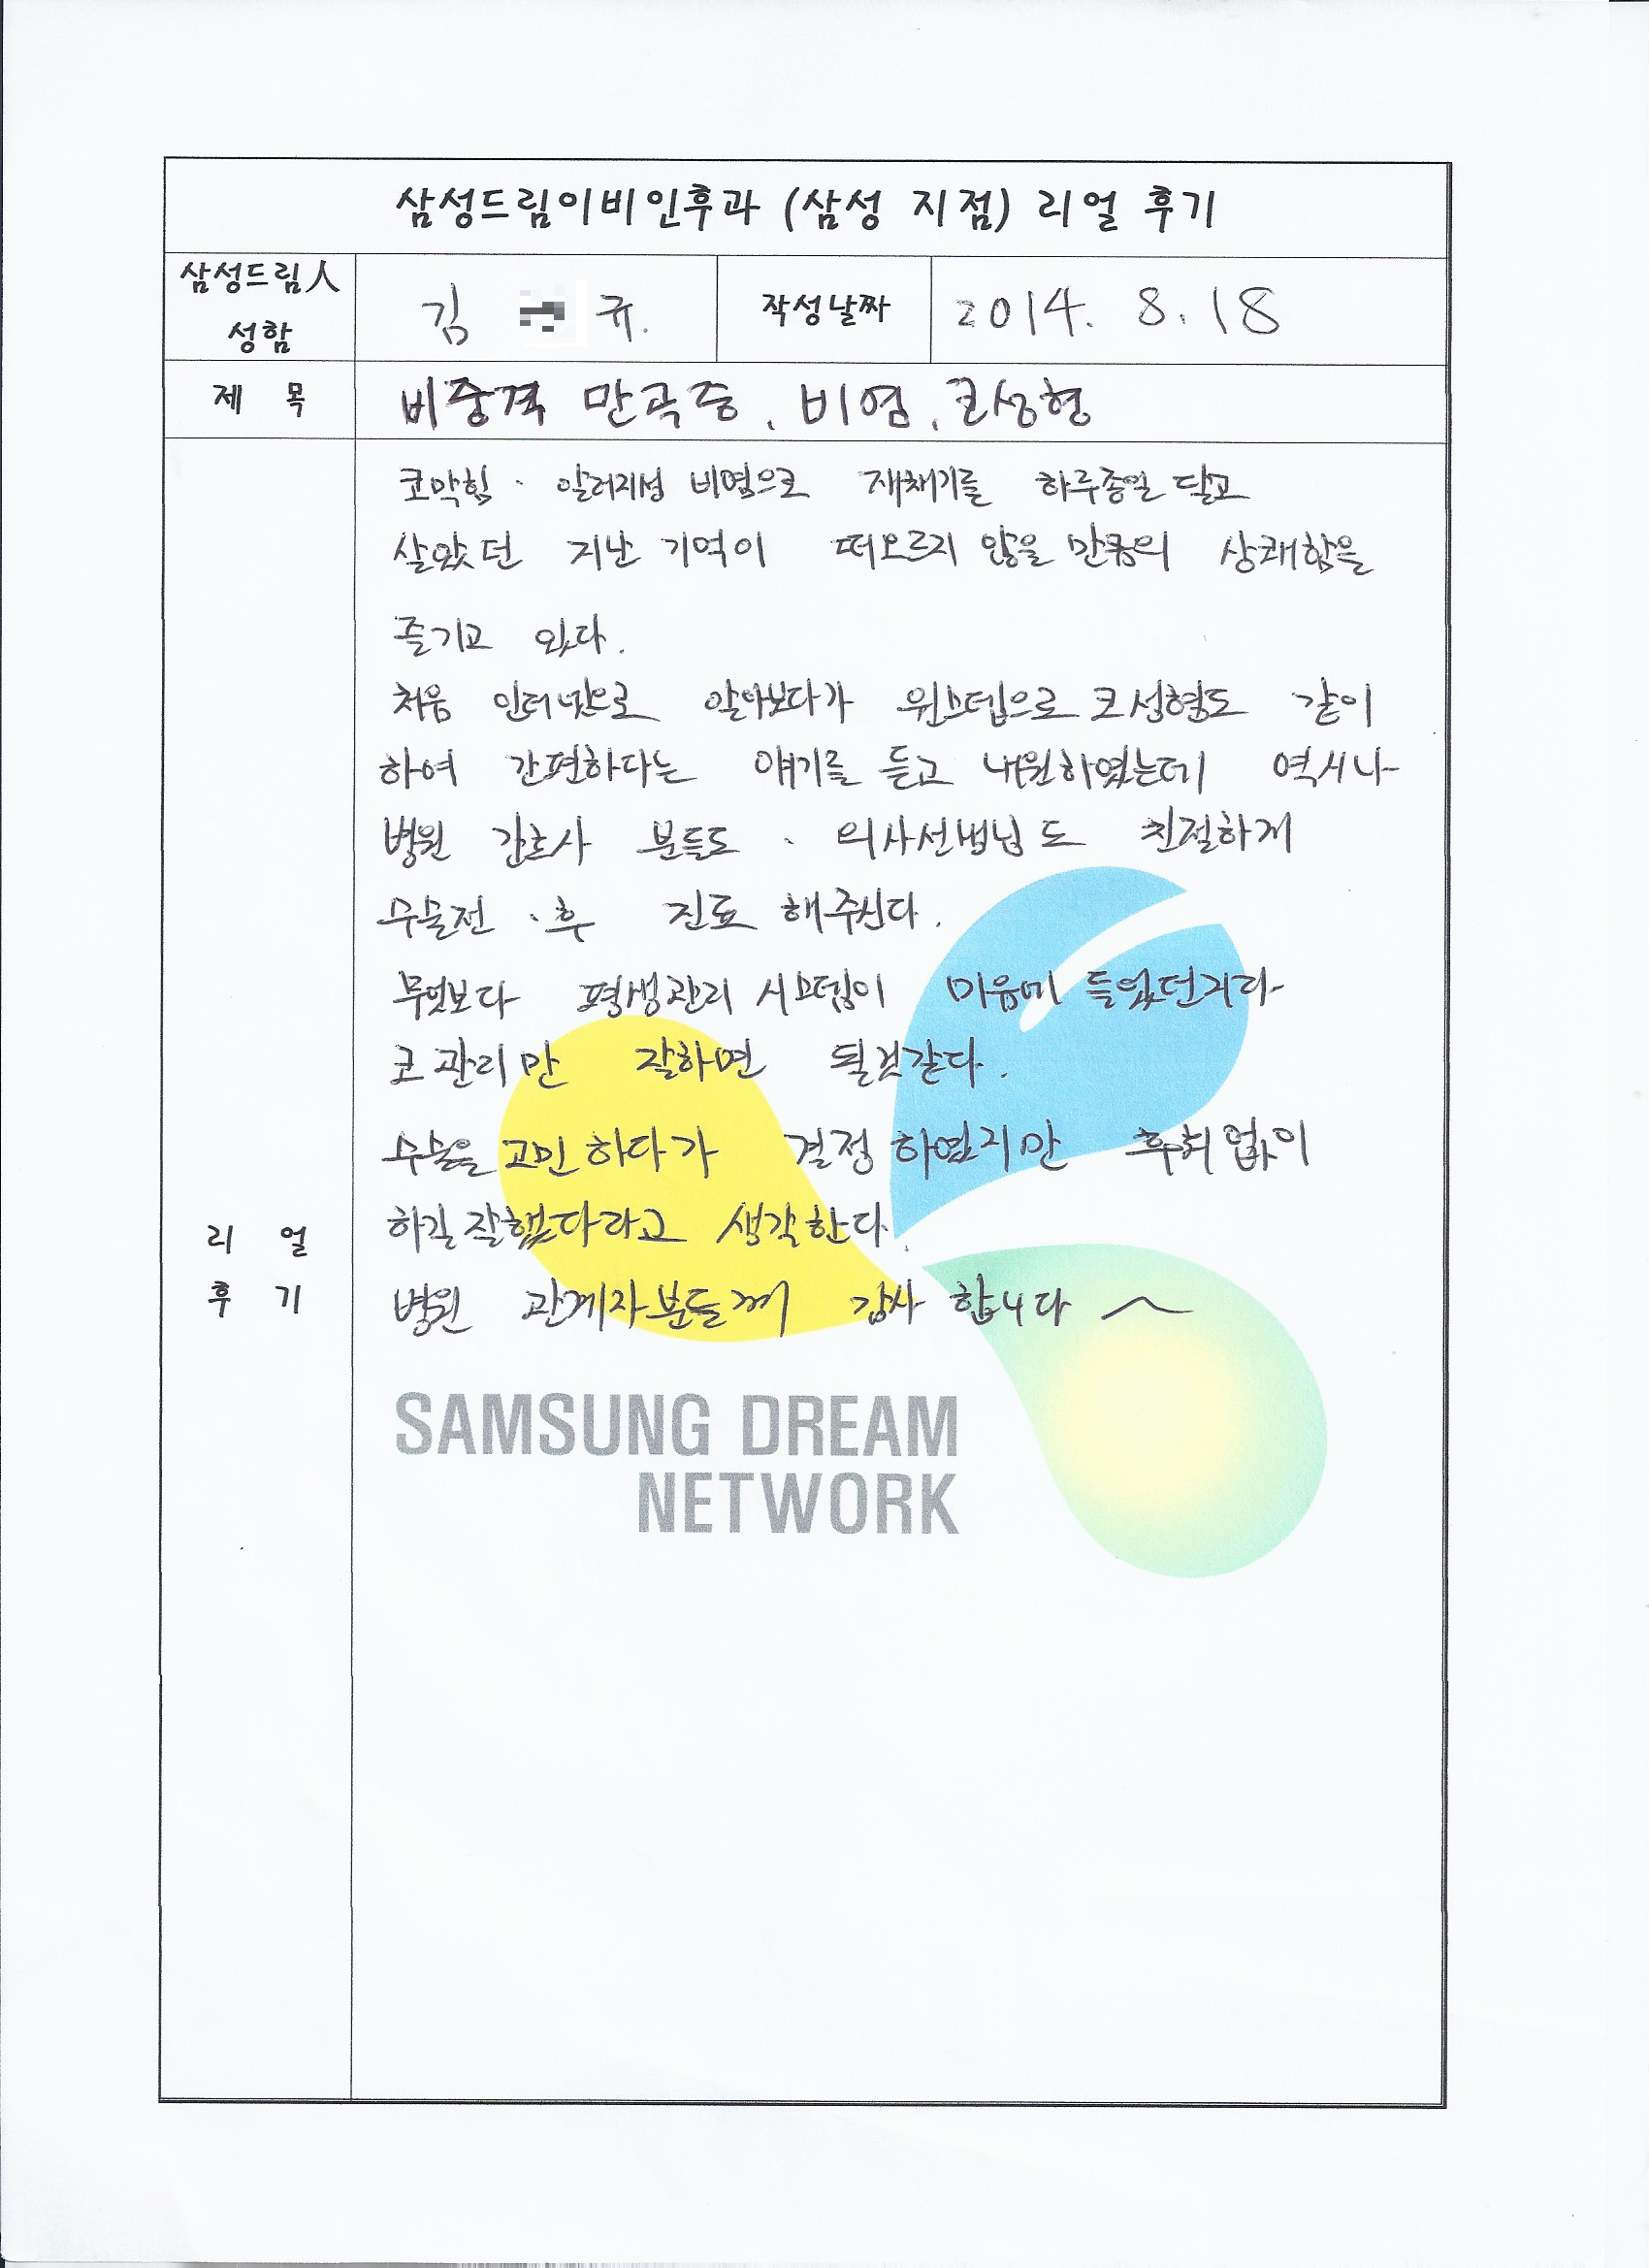 삼성드림이비인후과 (삼성 지점) 리얼 후기
삼성드림人
성함
김 규.
작성날짜
2014. 8. 18
제 목
비중격 만곡증, 비염, 코성형
코막힘 · 알러지성 비염으로 재채기를 하루종일 달고
살았던 지난 기억이 떠오르지 않을 만큼의 상쾌함을
즐기고 있다.
처음 인터넷으로 알아보다가 원스텝으로 코성형도 같이
하여 간편하다는 얘기를 듣고 내원하였는데 역시나
병원 간호사 분들도 · 의사선생님도 친절하게
수술전 · 후 진료 해주신다.
무엇보다 평생관리 시스템이 마음에 들었던지라
코 관리만 잘하면 될것같다.
수술을 고민하다가 결정 하였지만 후회 없이
하길 잘했다라고 생각한다.
리 얼
후 기
병원 관계자분들께 감사 합니다 ^
SAMSUNG DREAM
NETWORK